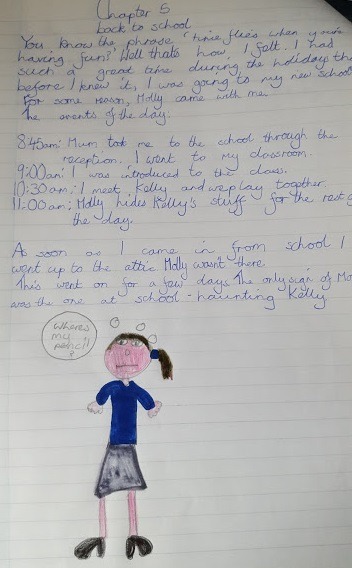 Chapter 5
back to school
You know the phrase "time flies when you're
having fun? Well that's how I felt. I had
such a great time during the holidays tha
before I knew it, I was going to my new school
For some reason, Molly came with me.
The events of the day:
8:45am: Mum took me to the school through the
reception. I went to my classroom.
9:00am: I was introduced to the class.
10:30am: I meet Kelly and we play together
11:00am: Molly hides Kelly's stuff for the rest o
the day.
As soon as I came in from school I
went up to the attic Molly wasn't there.
This went on for a few days. The only sign of Mo
was the one at school - haunting Kelly
Wheres
my
pencil
?